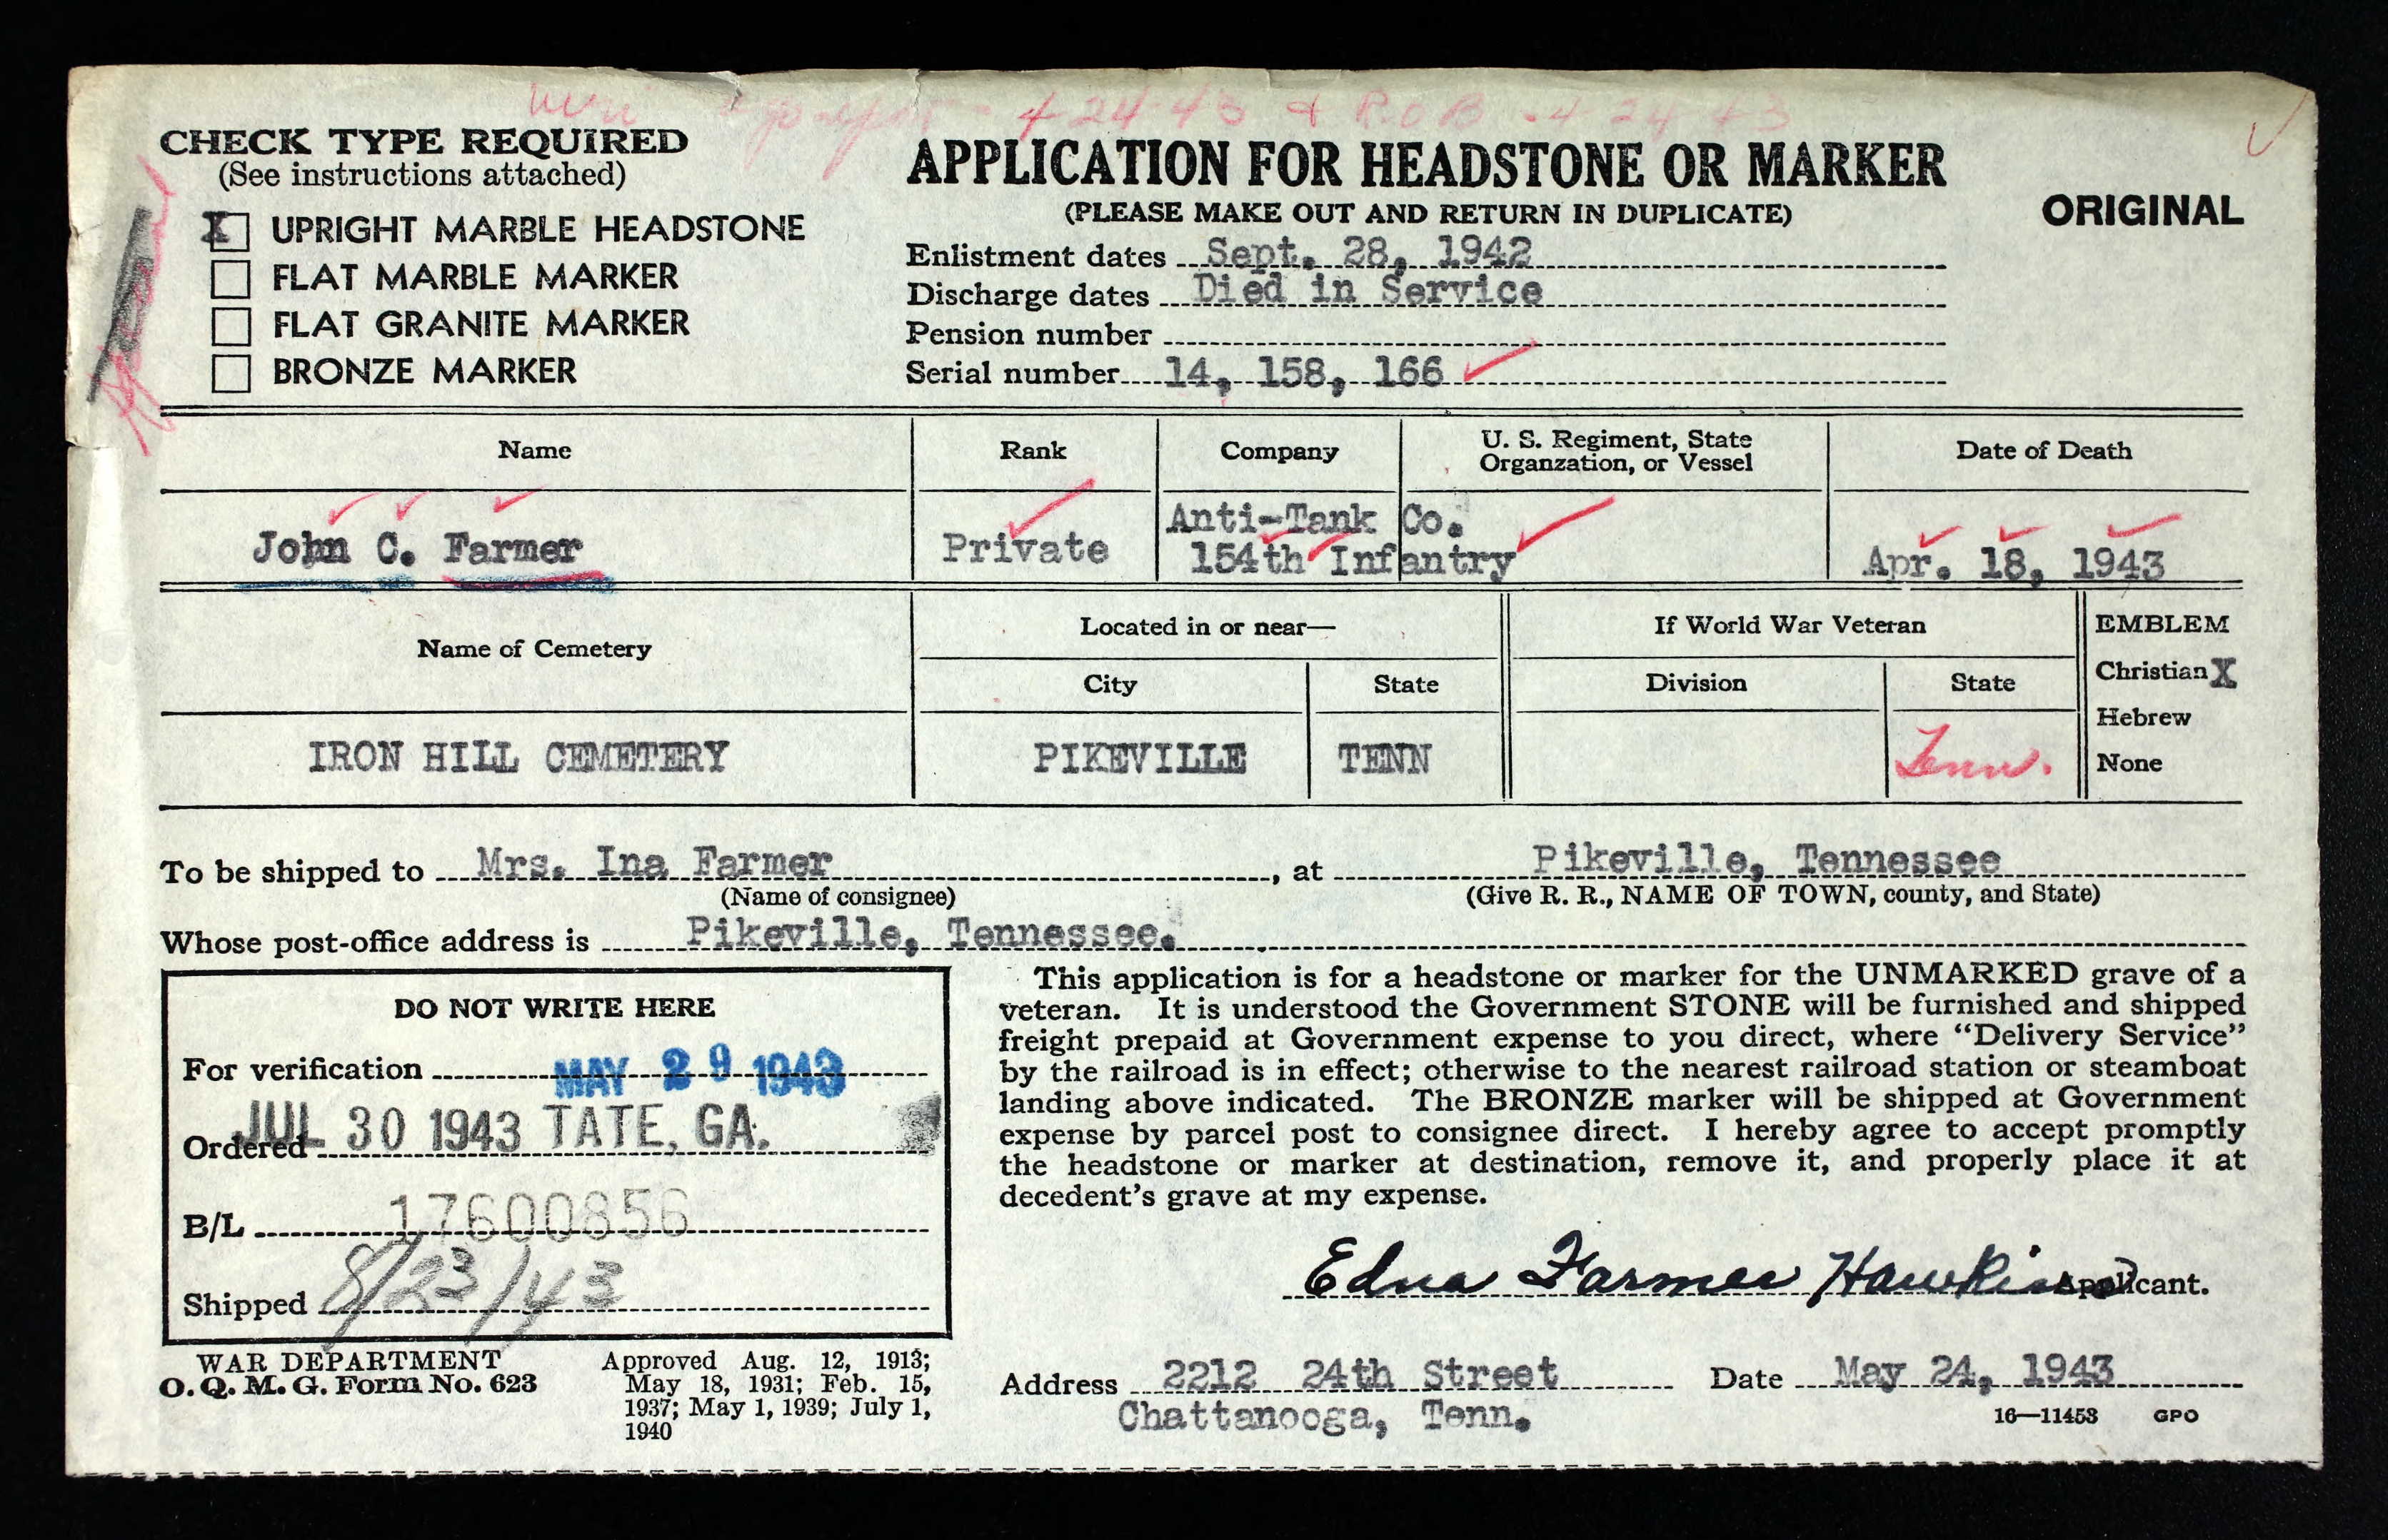 4-24-43 & R.O.B. 4-24-43
CHECK TYPE REQUIRED
(See instructions attached)
X UPRIGHT MARBLE HEADSTONE
FLAT MARBLE MARKER
FLAT GRANITE MARKER
BRONZE MARKER
APPLICATION FOR HEADSTONE OR MARKER
(PLEASE MAKE OUT AND RETURN IN DUPLICATE)
ORIGINAL
Enlistment dates Sept. 28, 1942
Discharge dates Died in Service
Pension number
Serial number 14, 158, 166
Name Rank Company U. S. Regiment, State Date of Death
Organzation, or Vessel
Anti-Tank Co.
John C. Farmer Private 154th Infantry Apr. 18, 1943
Name of Cemetery Located in or near— If World War Veteran EMBLEM
City State Division State Christian X
Hebrew
IRON HILL CEMETERY PIKEVILLE TENN Tenn. None
To be shipped to Mrs. Ina Farmer, at Pikeville, Tennessee
(Name of consignee) (Give R. R., NAME OF TOWN, county, and State)
Whose post-office address is Pikeville, Tennessee.
DO NOT WRITE HERE
For verification MAY 29 1943
Ordered JUL 30 1943 TATE, GA.
B/L 17600856
Shipped 8/23/43
This application is for a headstone or marker for the UNMARKED grave of a
veteran. It is understood the Government STONE will be furnished and shipped
freight prepaid at Government expense to you direct, where “Delivery Service”
by the railroad is in effect; otherwise to the nearest railroad station or steamboat
landing above indicated. The BRONZE marker will be shipped at Government
expense by parcel post to consignee direct. I hereby agree to accept promptly
the headstone or marker at destination, remove it, and properly place it at
decedent's grave at my expense.
Edna Farmer Hawkins Applicant.
WAR DEPARTMENT
O. Q. M. G. Form No. 623
Approved Aug. 12, 1913;
May 18, 1931; Feb. 15,
1937; May 1, 1939; July 1,
1940
Address 2212 24th Street Date May 24, 1943
Chattanooga, Tenn.
16—11453 GPO